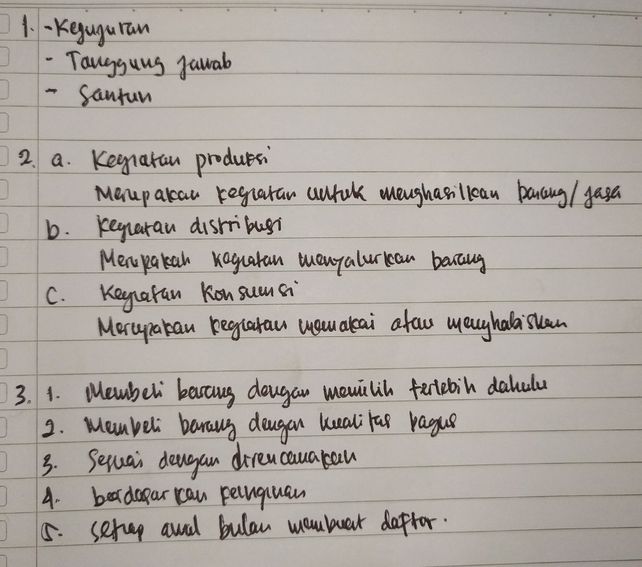 1. - Kejujuran
- Tanggung jawab
- Santun
2. a. Kegiatan produksi
Merupakan kegiatan untuk menghasilkan barang/jasa
b. Kegiatan distribusi
Merupakan kegiatan menyalurkan barang
c. Kegiatan Konsumsi
Merupakan kegiatan memakai atau menghabiskan
3. 1. Membeli barang dengan memilih terlebih dahulu
2. Membeli barang dengan kualitas bagus
3. Sesuai dengan direncanakan
4. berdasarkan
5. setiap awal bulan membuat daftar.